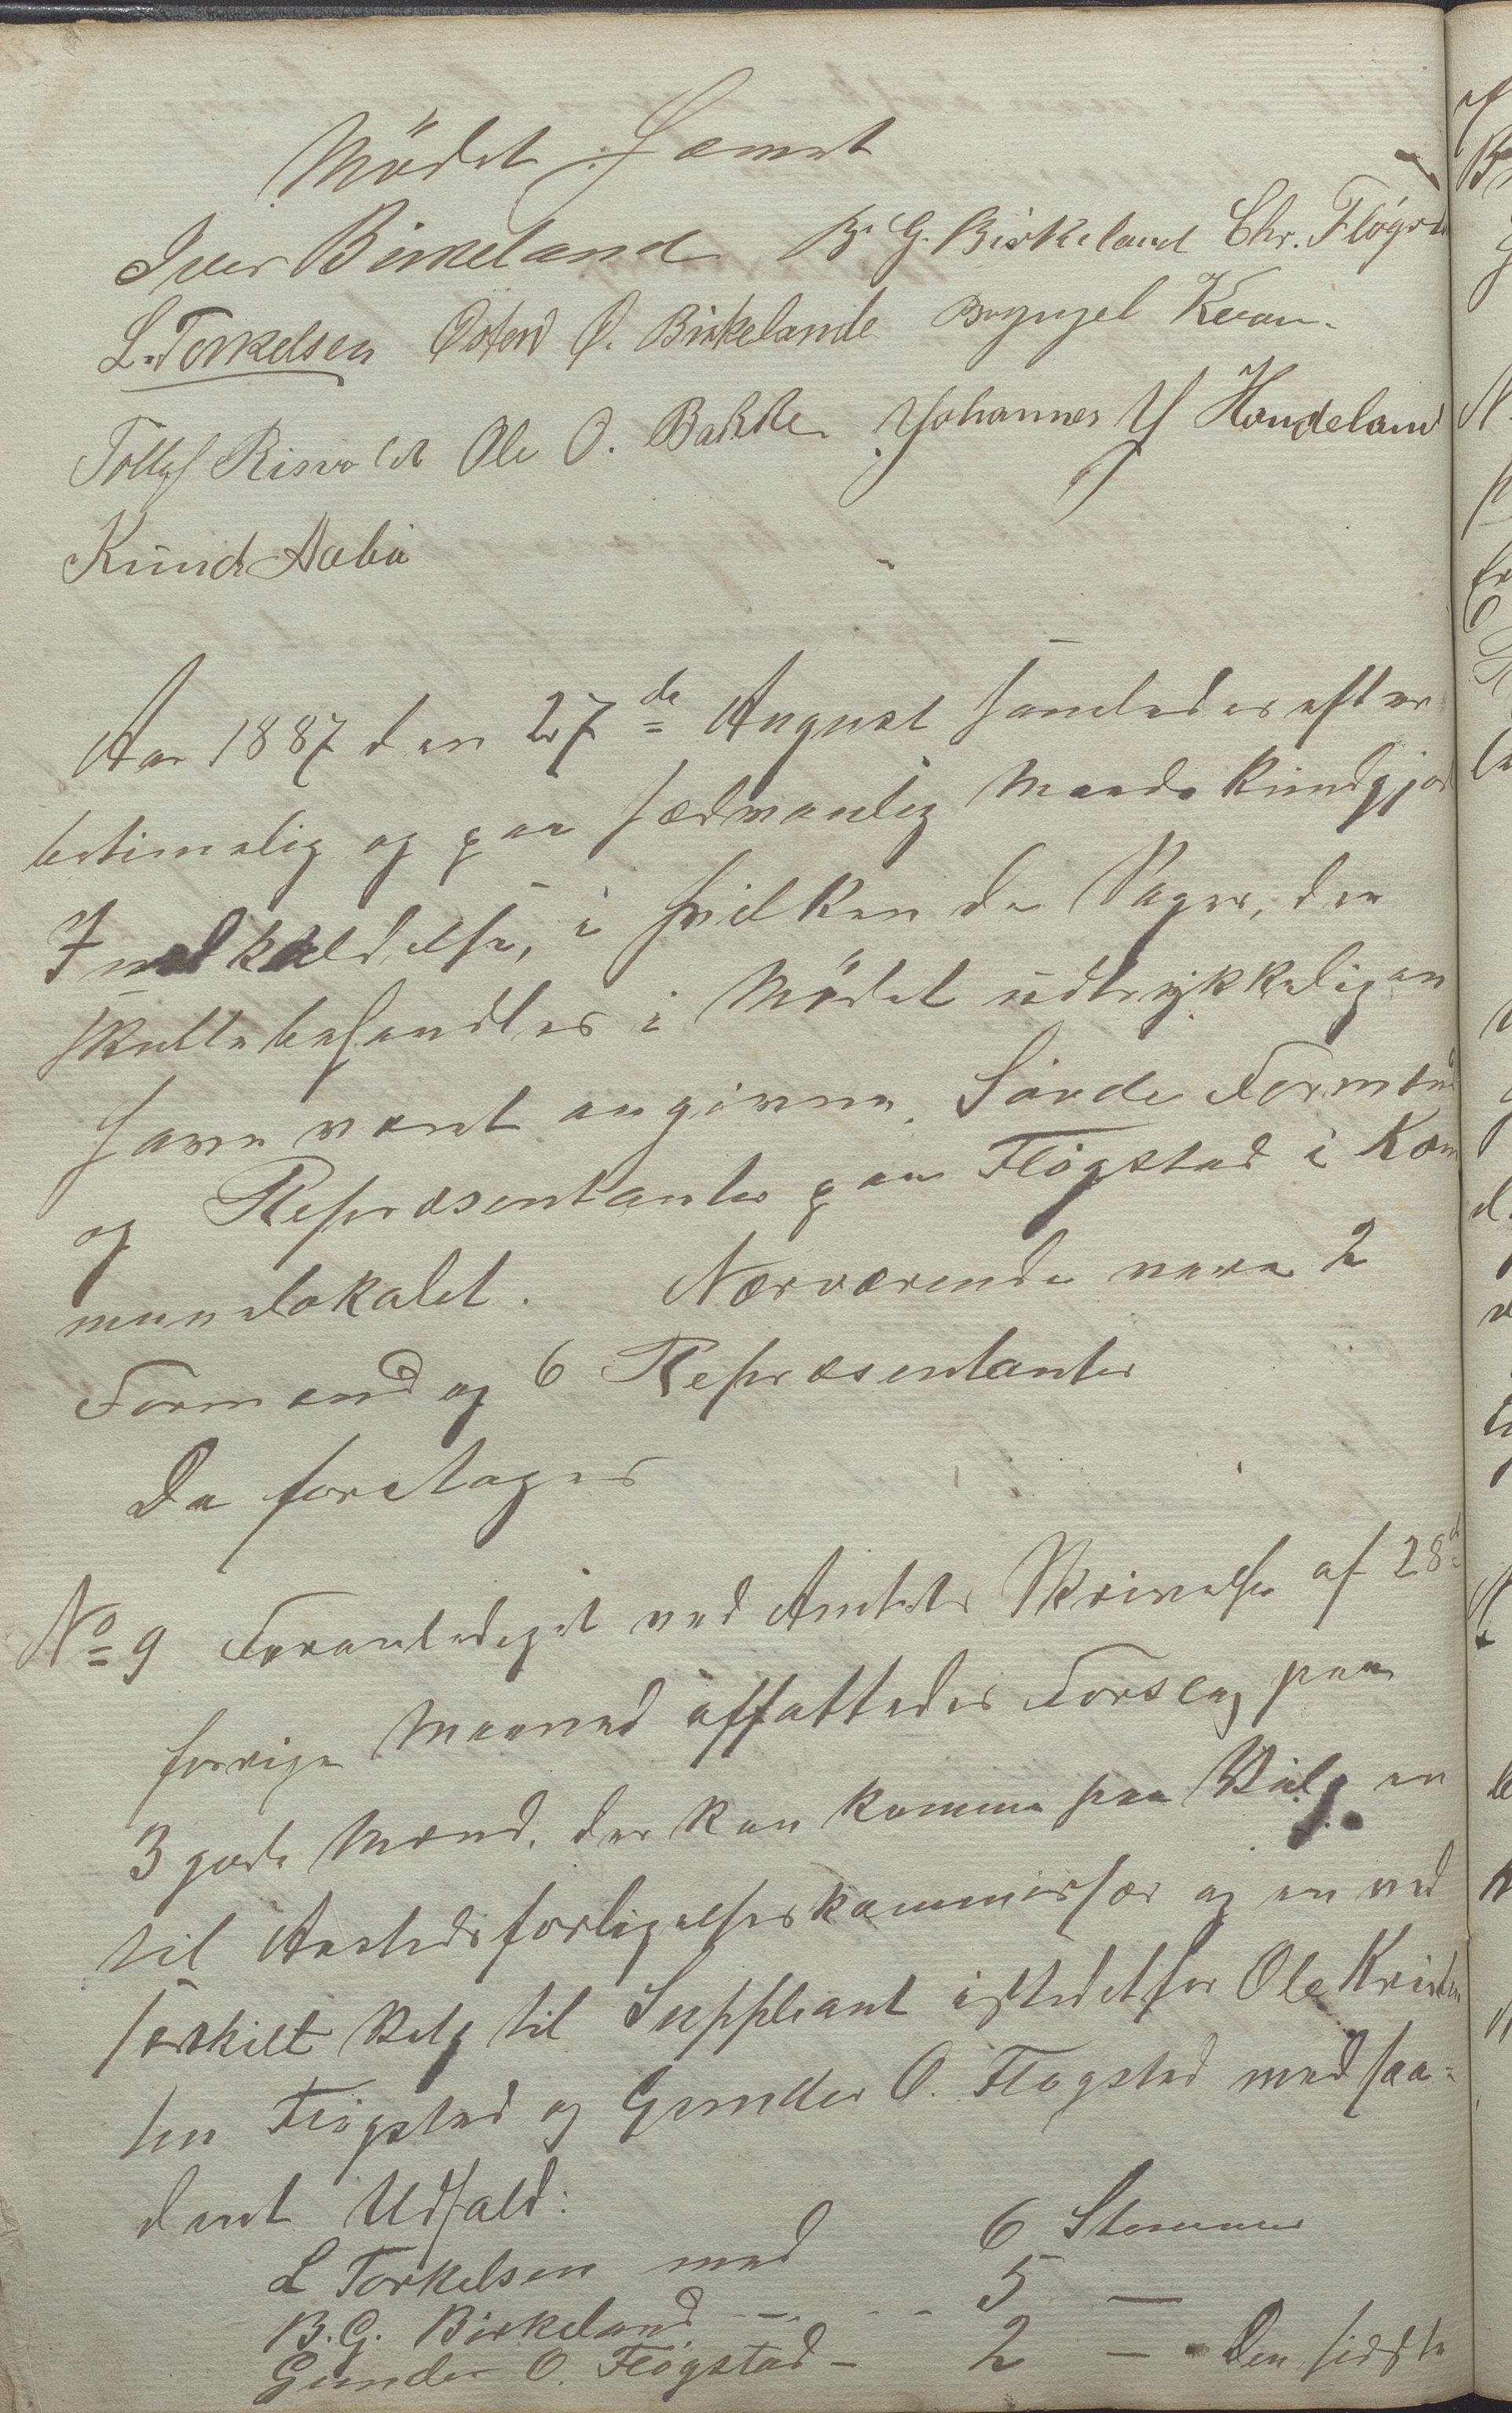 Mødet hævet
Iver Birkeland B. G. Birkeland Chr. Fløgst
L. Torkelsen Østen Ø. Birkelande Kvam.
Tollef Risvold Ole O. Bakke Johannes J Handeland
Knud Aabø
Aar 1887 den 27de August samledes efter
betimelig og paa sædvanlig Maade kundgjort
Indkaldelse, i hvilken de Sager, der
skulle behandles i Mødet udtrykkeligen
have været angivne, Saude Formænd
og Repræsentanter paa Fløgstad i Kom
munelokalet. Nærværende vare 2
Formænd og 6 Repræsentanter
Da foretages
No 9 Foranlediget ved Amtets Skrivelse af 28de
forrige Maaned affattedes Forslag paa
3 gode Mænd, der kan komme paa Valg en
til Aastedsforligelseskommissær og en ved
særskilt Valg til Suppleant istedetfor Ole Kristen
sen Fløgstad og Gunder O. Fløgstad med saa-
dant Udfald:
L Torkelsen med 6 Stemmer
B. G. Birkeland - - - 5 —
Gunder O. Fløgstad - 2 — Den sidste